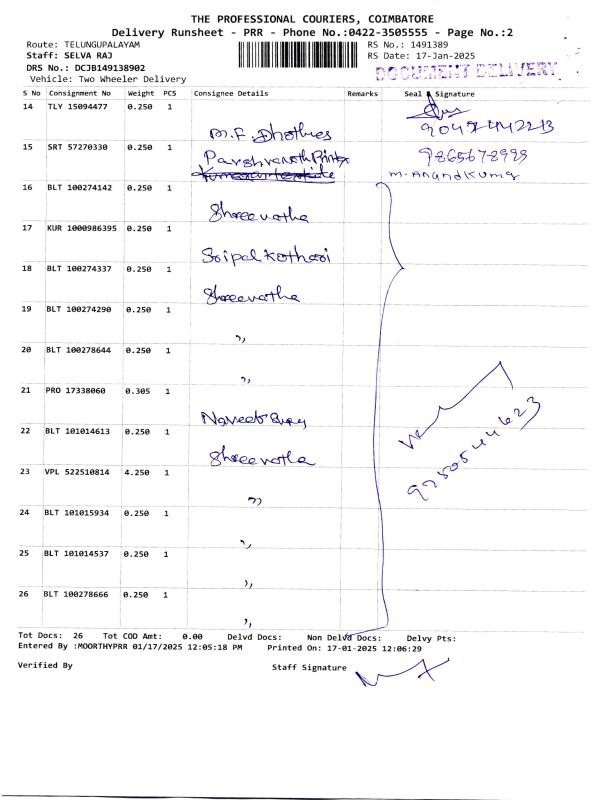 THE PROFESSIONAL COURIERS, COIMBATORE
Delivery Runsheet - PRR - Phone No.:0422-3505555 - Page No.:2
Route: TELUNGUPALAYAM RS No.: 1491389
Staff: SELVA RAJ RS Date: 17-Jan-2025
DRS No.: DCJB149138902 DOCUMENT DELIVERY
Vehicle: Two Wheeler Delivery
S No Consignment No Weight PCS Consignee Details Remarks Seal & Signature
14 TLY 15094477 0.250 1
M.F. Dhothies
15 SRT 57270330 0.250 1 9865678989
M. Anandkumar
16 BLT 100274142 0.250 1
Shreevatha
17 KUR 1000986395 0.250 1
Sripal Kothari
18 BLT 100274337 0.250 1
Shreevatha
19 BLT 100274290 0.250 1
"
20 BLT 100278644 0.250 1
"
21 PRO 17338060 0.305 1
22 BLT 101014613 0.250 1
Shreevatha
23 VPL 522510814 4.250 1
"
24 BLT 101015934 0.250 1
"
25 BLT 101014537 0.250 1
"
26 BLT 100278666 0.250 1
"
Tot Docs: 26 Tot COD Amt: 0.00 Delvd Docs: Non Delvd Docs: Delvy Pts:
Entered By :MOORTHYPRR 01/17/2025 12:05:18 PM Printed On: 17-01-2025 12:06:29
Verified By Staff Signature